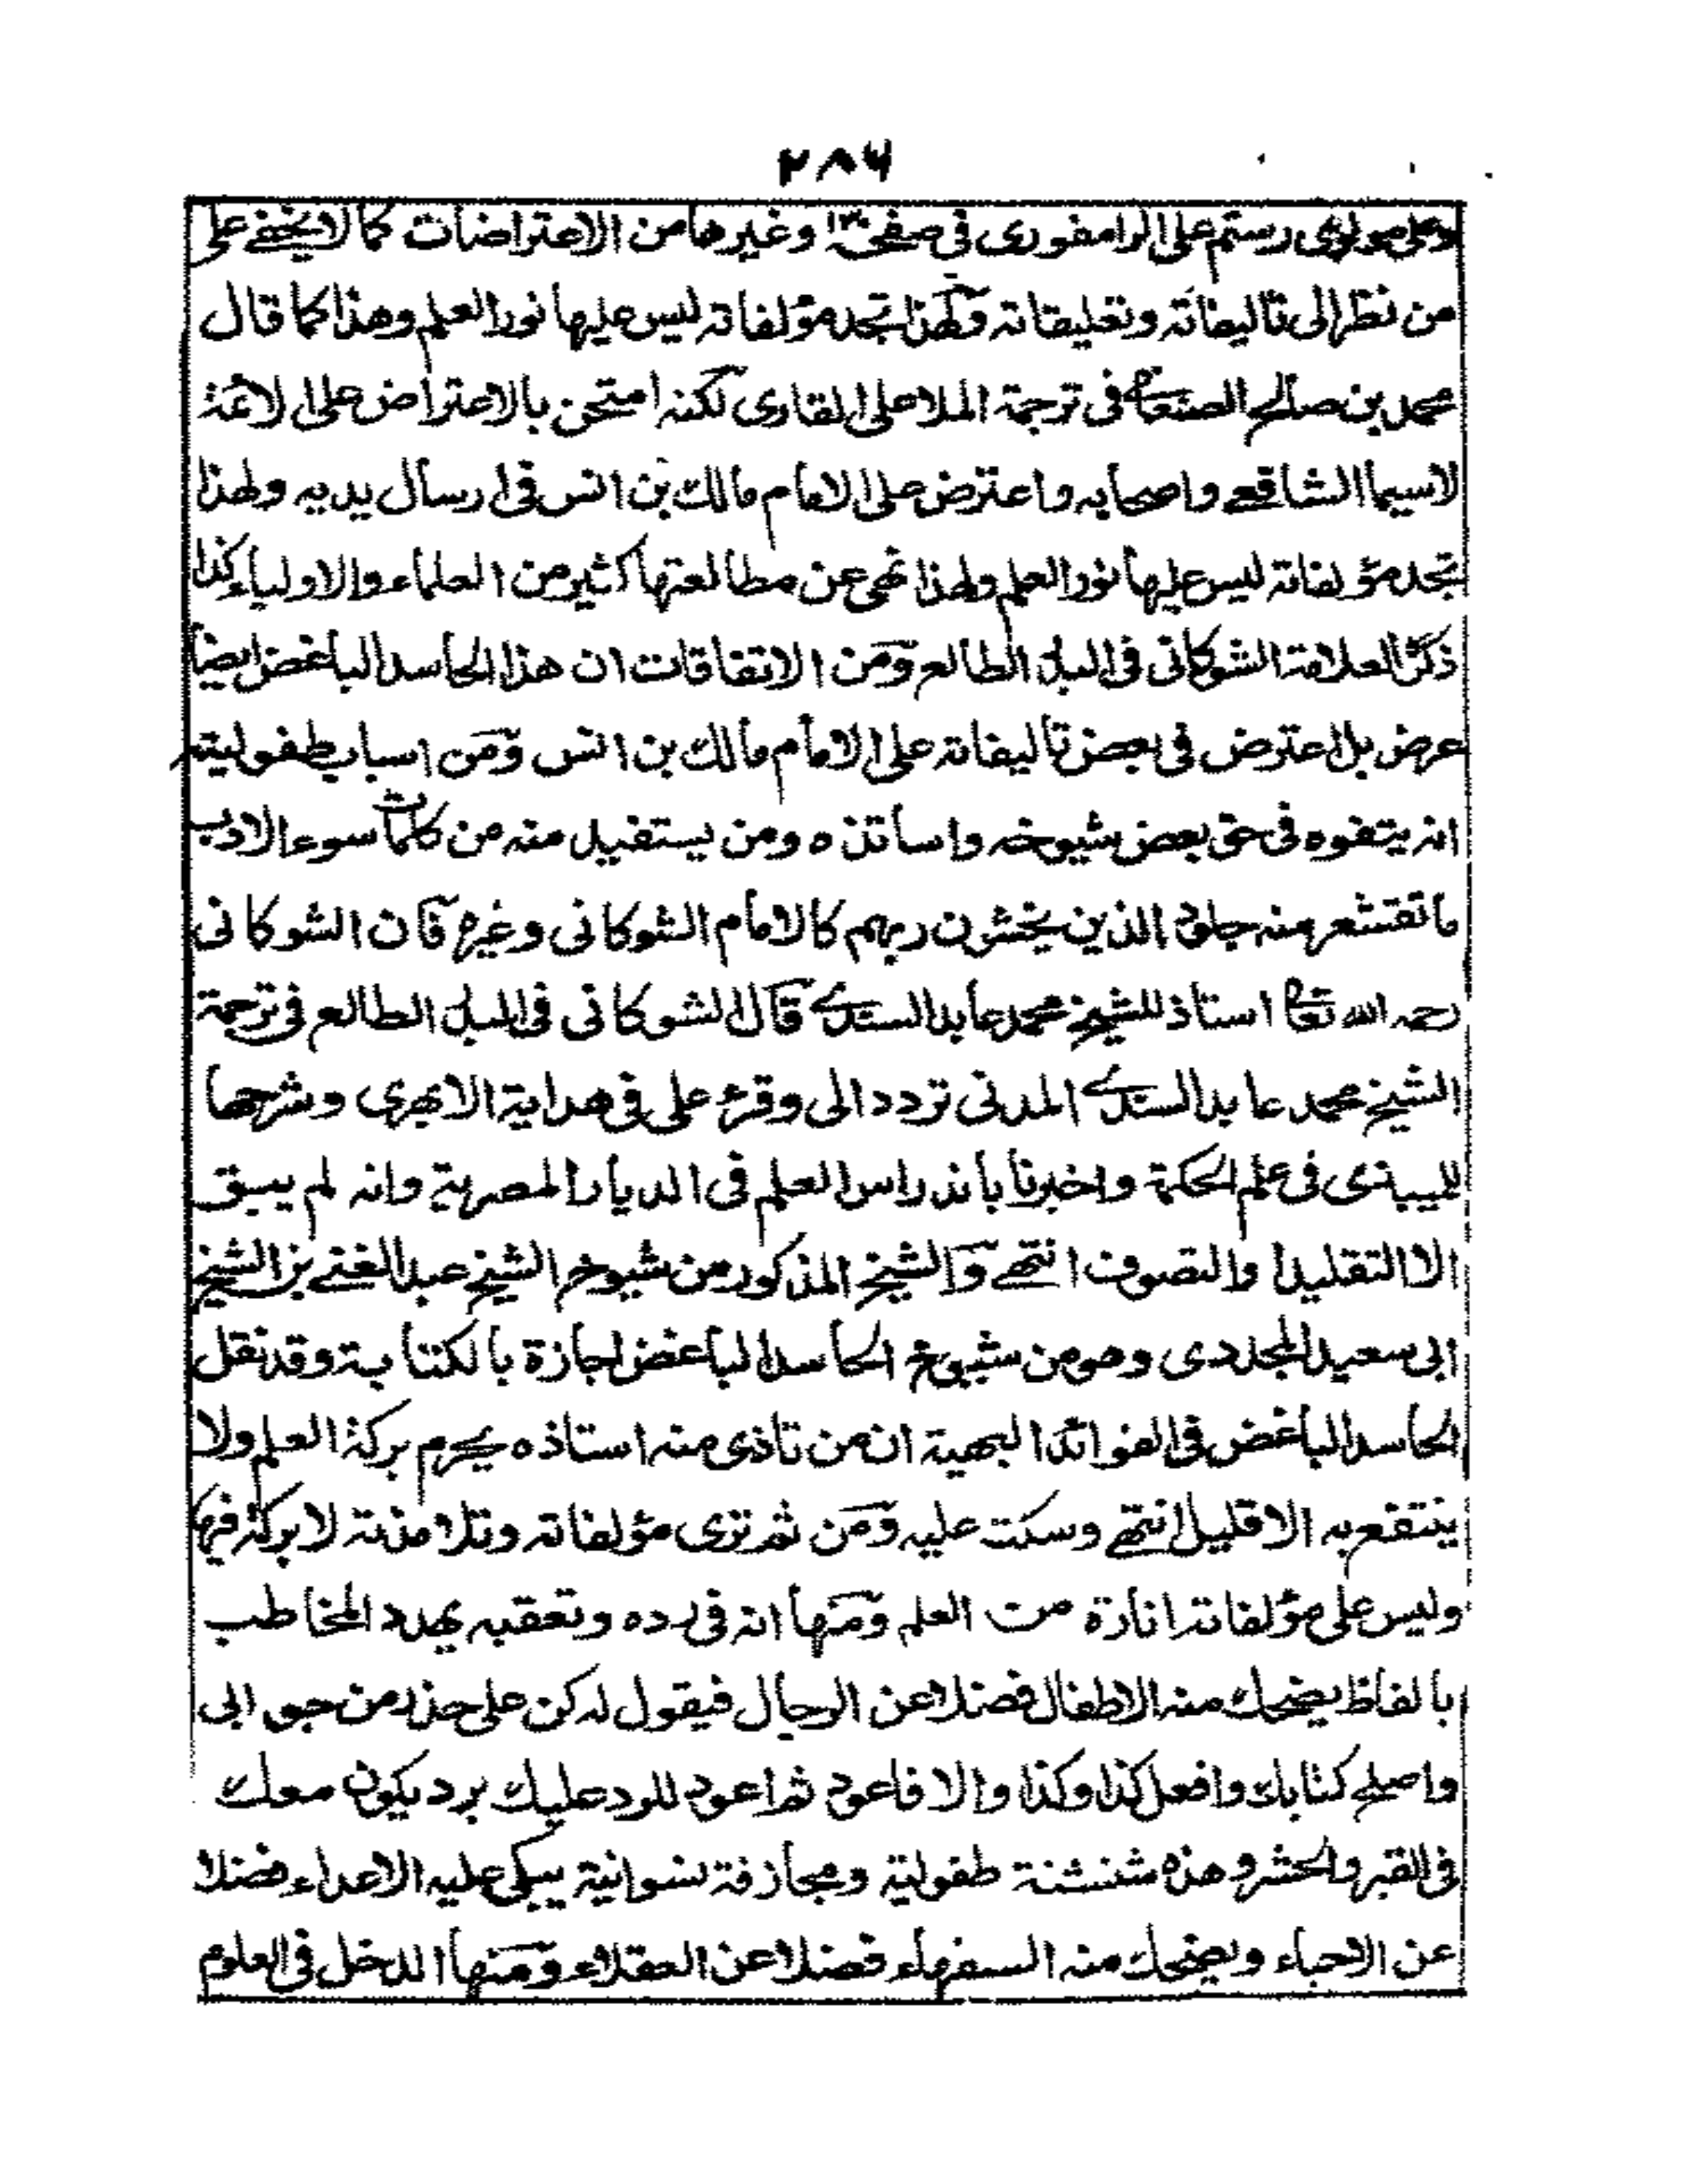 ٢٨٦
وعلى مولوى رستم على الرامفورى فى صفحة ١٣٠ وغيرها من الاعتراضات كما لا يخفے على
من نظر الى تاليفاته وتعليقاته ولهذا تجد مؤلفاته ليس عليها نور العلم وهذا كما قال
محمد بن صالح الصنعاے فى ترجمة الملا على القارى لكنه امتحن بالاعتراض على الائمة
لاسيما الشافعے واصحابه واعترض على الامام مالك بن انس فى ارسال يديه ولهذا
تجد مؤلفاته ليس عليها نور العلم ولهذا نهى عن مطالعتها كثير من العلماء والاولياء كذا
ذكره العلامة الشوكانى فى البدر الطالع ومن الاتفاقات ان هذا الحاسد الباغض ايضاً
عرض بل اعترض فى بعض تأليفاته على الامام مالك بن انس ومن اسباب طفوليته
انه يتفوه فى حق بعض شيوخه واساتذه ومن يستفيد منه من كلمات سوء الادب
ما تقشعر منه جلود الذين يخشون ربهم كالامام الشوكانى وغيره فان الشوكانى
رحمه الله تعا استاذ للشيخ محمد عابد السندے قال الشوكانى فى البدر الطالع فى ترجمة
الشيخ محمد عابد السندے المدنى تردد الى وقرء على فى هداية الابهرى وشرحها
للميبذى فى علم الحكمة واخبرنا باندراس العلم فى الديار المصرية وانه لم يبق
الا التقليد والتصوف انتهے والشيخ المذكور من شيوخ الشيخ عبد الغنے بن الشيخ
ابى سعيد المجددى وهو من شيوخ الحاسد الباغض اجازة بالكتابة وقد نقل
الحاسد الباغض فى الفوائد البهية ان من تاذى منه استاذه يحرم بركة العلم ولا
ينتفع به الا قليل انتهے وسكت عليه ومن ثم ترى مؤلفاته وتلامذته لا بركة فيها
وليس على مؤلفاته انارة من العلم ومنها انه فى رده وتعقبه يهدد المخاطب
بالفاظ يضحك منه الاطفال فضلا عن الرجال فيقول له كن على حذر من جوابى
واصلح كتابك وافعل كذا وكذا والا فاعود ثم اعود للرد عليك برد يكون معك
فى القبر والحشر وهذه شنشنة طفولية ومجازفة نسوانية يبكى عليه الاعداء فضلا
عن الاحباء ويضحك منه السفهاء فضلا عن العقلاء ومنها الدخل فى العلوم